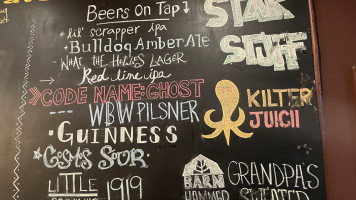 Beers on Tap
lil' scrapper ipa
Bulldog Amber Ale
What the Helles Lager
Red line ipa
CODE NAME: GHOST
WBW PILSNER
GUINNESS
Cosmis Sour
LITTLE
1919
STAR
STUFF
KILTER
JUICII
BARN
HAMMER
GRANDPA'S
SWEATER